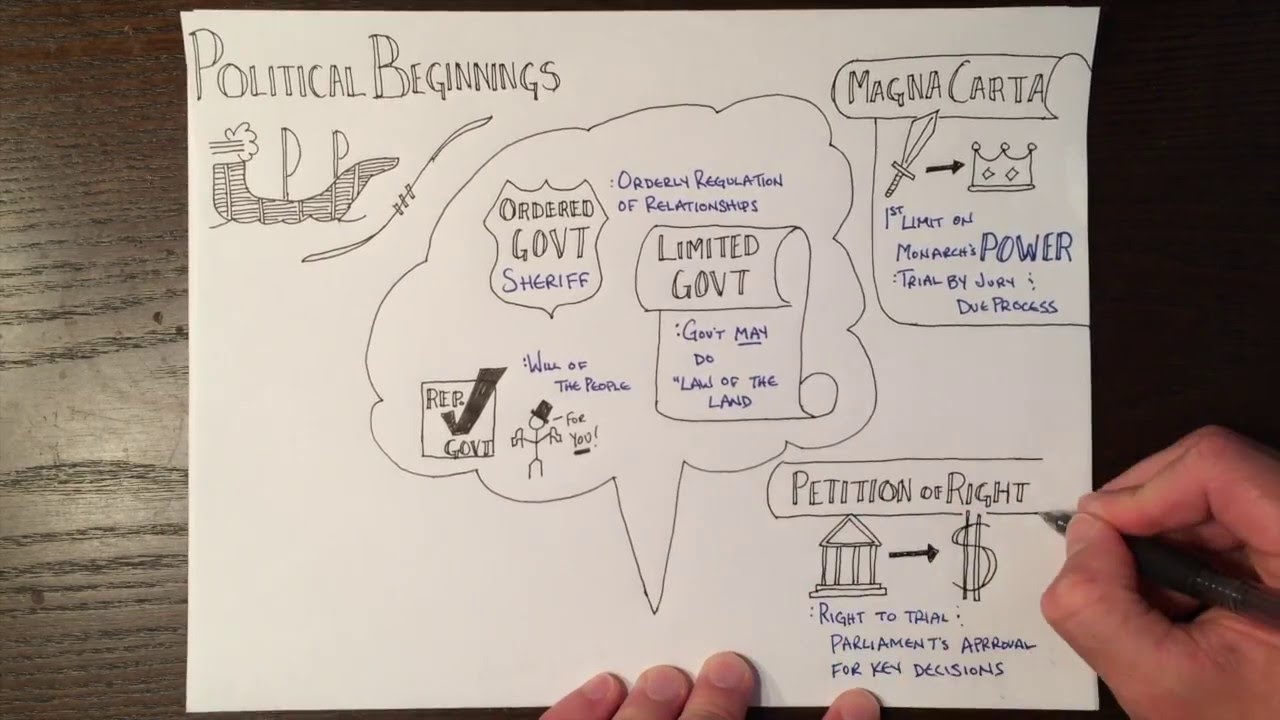 POLITICAL BEGINNINGS
ORDERED
GOVT
SHERIFF
: ORDERLY REGULATION
OF RELATIONSHIPS
LIMITED
GOVT
: GOV'T MAY
DO
"LAW OF THE
LAND
REP.
GOVT
: WILL OF
THE PEOPLE
FOR
YOU!
MAGNA CARTA
1ST LIMIT ON
MONARCH'S POWER
: TRIAL BY JURY :
DUE PROCESS
PETITION OF RIGHT
$
: RIGHT TO TRIAL :
PARLIAMENT'S APRROVAL
FOR KEY DECISIONS